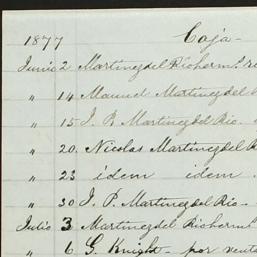 1877 Caja-
Junio 2 Martinez del Rio herm.s
" 14 Manuel Martinez del
" 15 J. P. Martinez del Rio.
" 20. Nicolas Martinez del R
" 23 idem idem
" 30 J. P. Martinez del Rio-
Julio 3 Martinez del Rio herm
" 6 G. Knight- por venta